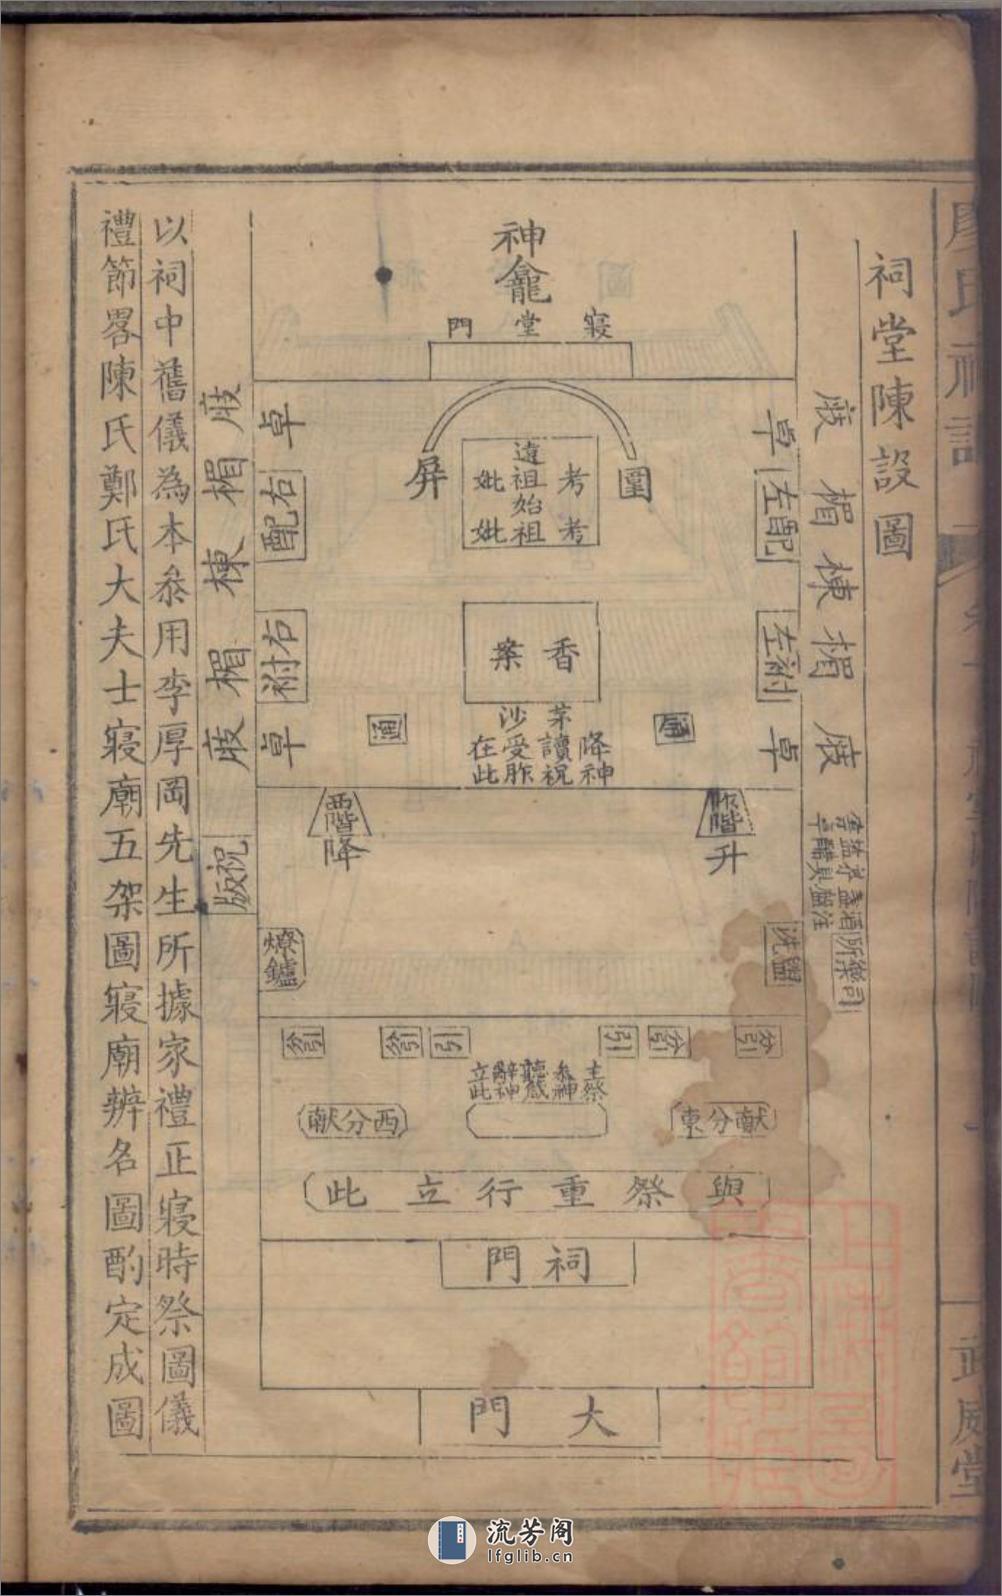 祠堂陳設圖
神龕
寢堂門
圍屏
考遠祖妣
考始祖妣
香案
茅沙
降神讀祝受胙在此
通
通
庋楣棟楣庋
卓
左配
左祔
卓
庋楣棟楣庋
卓
右配
右祔
卓
阼階
升
西階
降
司樂所
盥洗
祝版
燎鑪
引
引
主祭參神聽嘏辭神立此
東分献
西分献
與祭重行立此
祠門
大門
以祠中舊儀為本叅用李厚岡先生所據家禮正寢時祭圖儀
禮節畧陳氏鄭氏大夫士寢廟五架圖寢廟辨名圖酌定成圖
武威堂
流芳阁
lfglib.cn